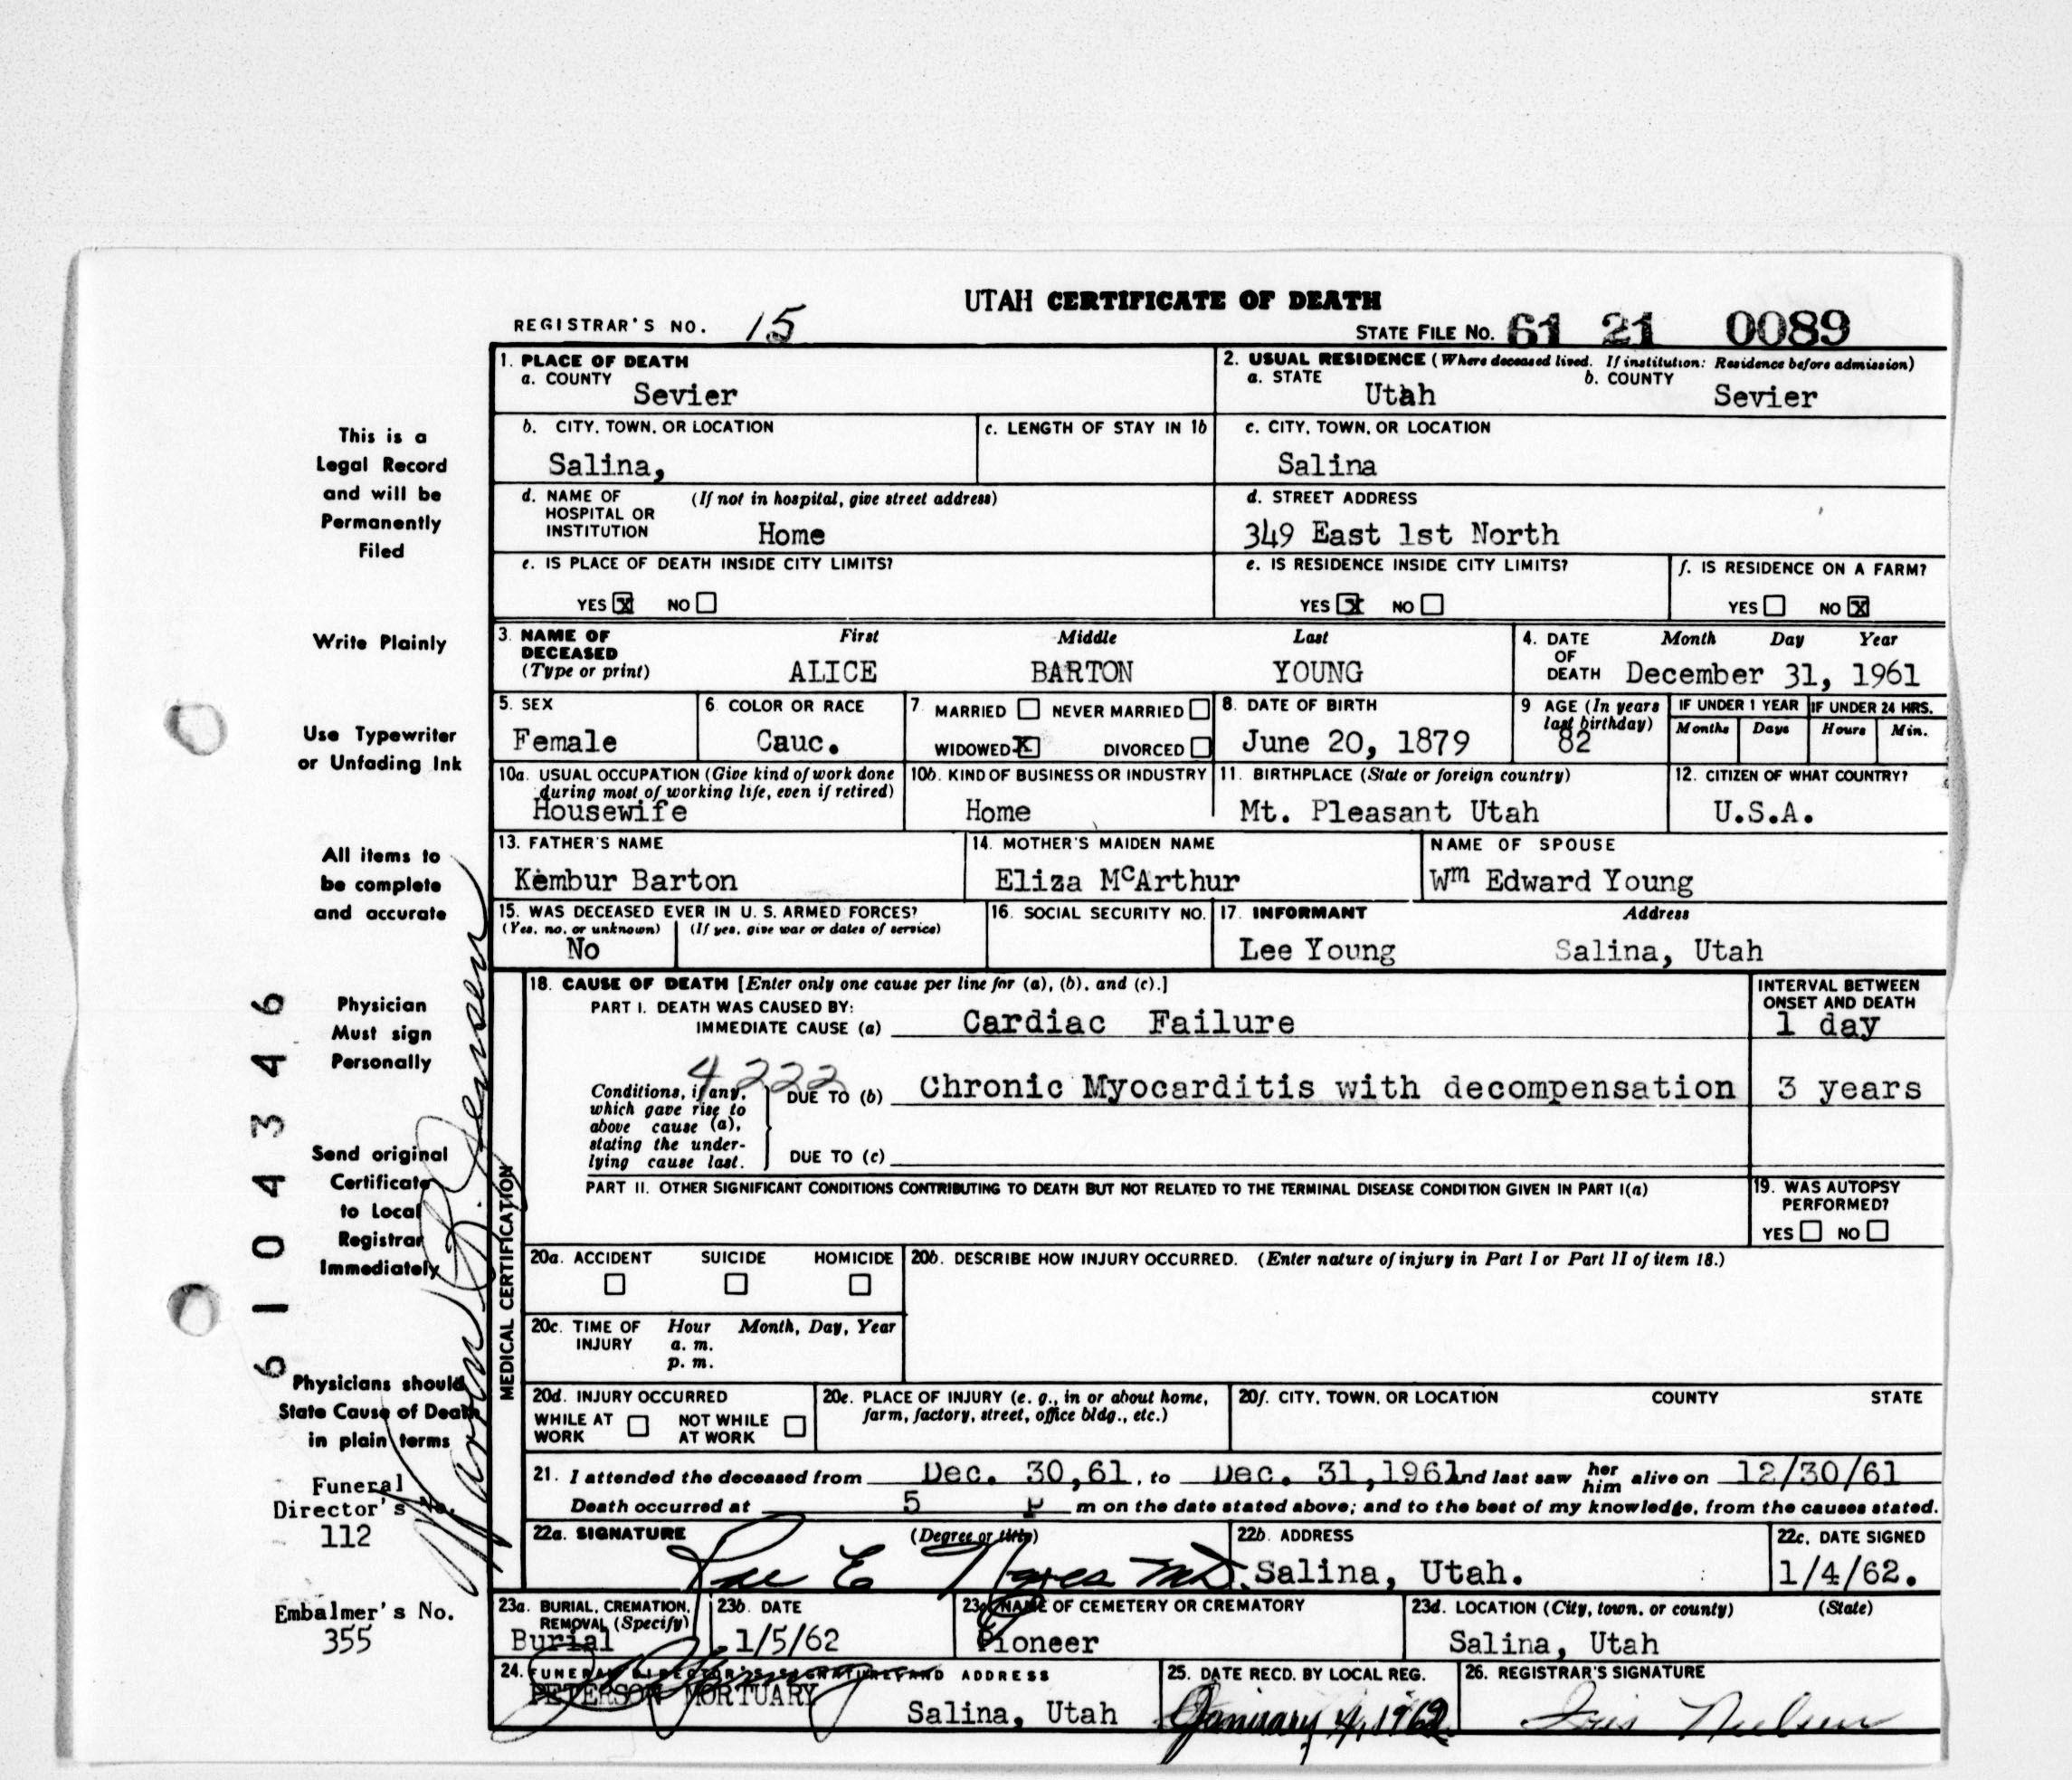 UTAH CERTIFICATE OF DEATH
REGISTRAR'S NO. 15
STATE FILE NO. 61 21 0089
1. PLACE OF DEATH
a. COUNTY
Sevier
2. USUAL RESIDENCE (Where deceased lived. If institution: Residence before admission)
a. STATE b. COUNTY
Utah Sevier
b. CITY, TOWN, OR LOCATION
Salina,
c. LENGTH OF STAY IN 1b
c. CITY, TOWN, OR LOCATION
Salina
d. NAME OF HOSPITAL OR INSTITUTION (If not in hospital, give street address)
Home
d. STREET ADDRESS
349 East 1st North
e. IS PLACE OF DEATH INSIDE CITY LIMITS?
YES X NO
e. IS RESIDENCE INSIDE CITY LIMITS?
YES X NO
f. IS RESIDENCE ON A FARM?
YES NO X
3. NAME OF DECEASED (Type or print)
First Middle Last
ALICE BARTON YOUNG
4. DATE OF DEATH
Month Day Year
December 31, 1961
5. SEX
Female
6. COLOR OR RACE
Cauc.
7. MARRIED NEVER MARRIED
WIDOWED X DIVORCED
8. DATE OF BIRTH
June 20, 1879
9 AGE (In years last birthday)
82
IF UNDER 1 YEAR
Months Days
IF UNDER 24 HRS.
Hours Min.
10a. USUAL OCCUPATION (Give kind of work done during most of working life, even if retired)
Housewife
10b. KIND OF BUSINESS OR INDUSTRY
Home
11. BIRTHPLACE (State or foreign country)
Mt. Pleasant Utah
12. CITIZEN OF WHAT COUNTRY?
U.S.A.
13. FATHER'S NAME
Kembur Barton
14. MOTHER'S MAIDEN NAME
Eliza McArthur
NAME OF SPOUSE
Wm Edward Young
15. WAS DECEASED EVER IN U. S. ARMED FORCES?
(Yes, no, or unknown) (If yes, give war or dates of service)
No
16. SOCIAL SECURITY NO.
17. INFORMANT Address
Lee Young Salina, Utah
MEDICAL CERTIFICATION
18. CAUSE OF DEATH [Enter only one cause per line for (a), (b), and (c).]
PART I. DEATH WAS CAUSED BY:
IMMEDIATE CAUSE (a) Cardiac Failure
INTERVAL BETWEEN ONSET AND DEATH
1 day
4222
Conditions, if any, which gave rise to above cause (a), stating the underlying cause last.
DUE TO (b) Chronic Myocarditis with decompensation
3 years
DUE TO (c)
PART II. OTHER SIGNIFICANT CONDITIONS CONTRIBUTING TO DEATH BUT NOT RELATED TO THE TERMINAL DISEASE CONDITION GIVEN IN PART I(a)
19. WAS AUTOPSY PERFORMED?
YES NO
20a. ACCIDENT SUICIDE HOMICIDE
20b. DESCRIBE HOW INJURY OCCURRED. (Enter nature of injury in Part I or Part II of item 18.)
20c. TIME OF INJURY Hour Month, Day, Year
a. m.
p. m.
20d. INJURY OCCURRED
WHILE AT WORK NOT WHILE AT WORK
20e. PLACE OF INJURY (e. g., in or about home, farm, factory, street, office bldg., etc.)
20f. CITY, TOWN, OR LOCATION COUNTY STATE
21. I attended the deceased from Dec. 30,61, to Dec. 31,1961nd last saw her him alive on 12/30/61
Death occurred at 5 P m on the date stated above; and to the best of my knowledge, from the causes stated.
22a. SIGNATURE (Degree or title)
Rae E Noyes MD.
22b. ADDRESS
Salina, Utah.
22c. DATE SIGNED
1/4/62.
23a. BURIAL, CREMATION, REMOVAL (Specify)
Burial
23b. DATE
1/5/62
23c. NAME OF CEMETERY OR CREMATORY
Pioneer
23d. LOCATION (City, town, or county) (State)
Salina, Utah
24. FUNERAL DIRECTOR'S SIGNATURE AND ADDRESS
PETERSON MORTUARY
Salina, Utah
25. DATE RECD. BY LOCAL REG.
January 4, 1962
26. REGISTRAR'S SIGNATURE
Iris Nielsen
This is a
Legal Record
and will be
Permanently
Filed
Write Plainly
Use Typewriter
or Unfading Ink
All items to
be complete
and accurate
Physician
Must sign
Personally
Send original
Certificate
to Local
Registrar
Immediately
Physicians should
State Cause of Death
in plain terms
Funeral
Director's No.
112
Embalmer's No.
355
6104346